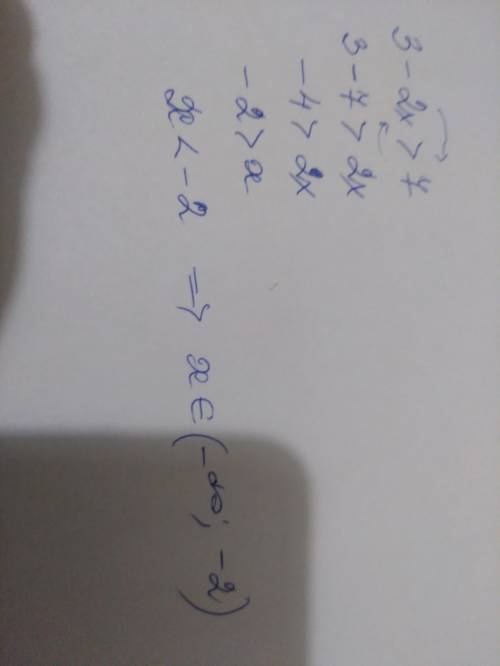 3 - 2x > 7
3 - 7 > 2x
-4 > 2x
-2 > x
x < -2 => x ∈ (-∞; -2)